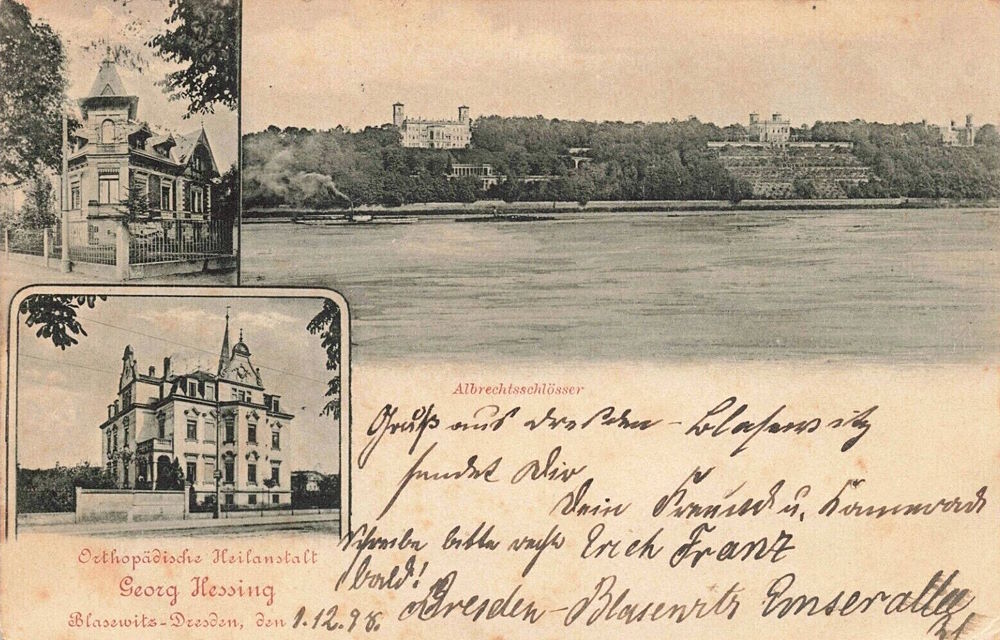 Albrechtsschlösser
Gruß aus Dresden-Blasewitz
sendet Dir
Dein Freund u. Kamerad
Schreibe bitte recht Erich Franz
bald!
Dresden-Blasewitz Emserallee
Orthopädische Heilanstalt
Georg Hessing
Blasewitz-Dresden, den 1.12.98.